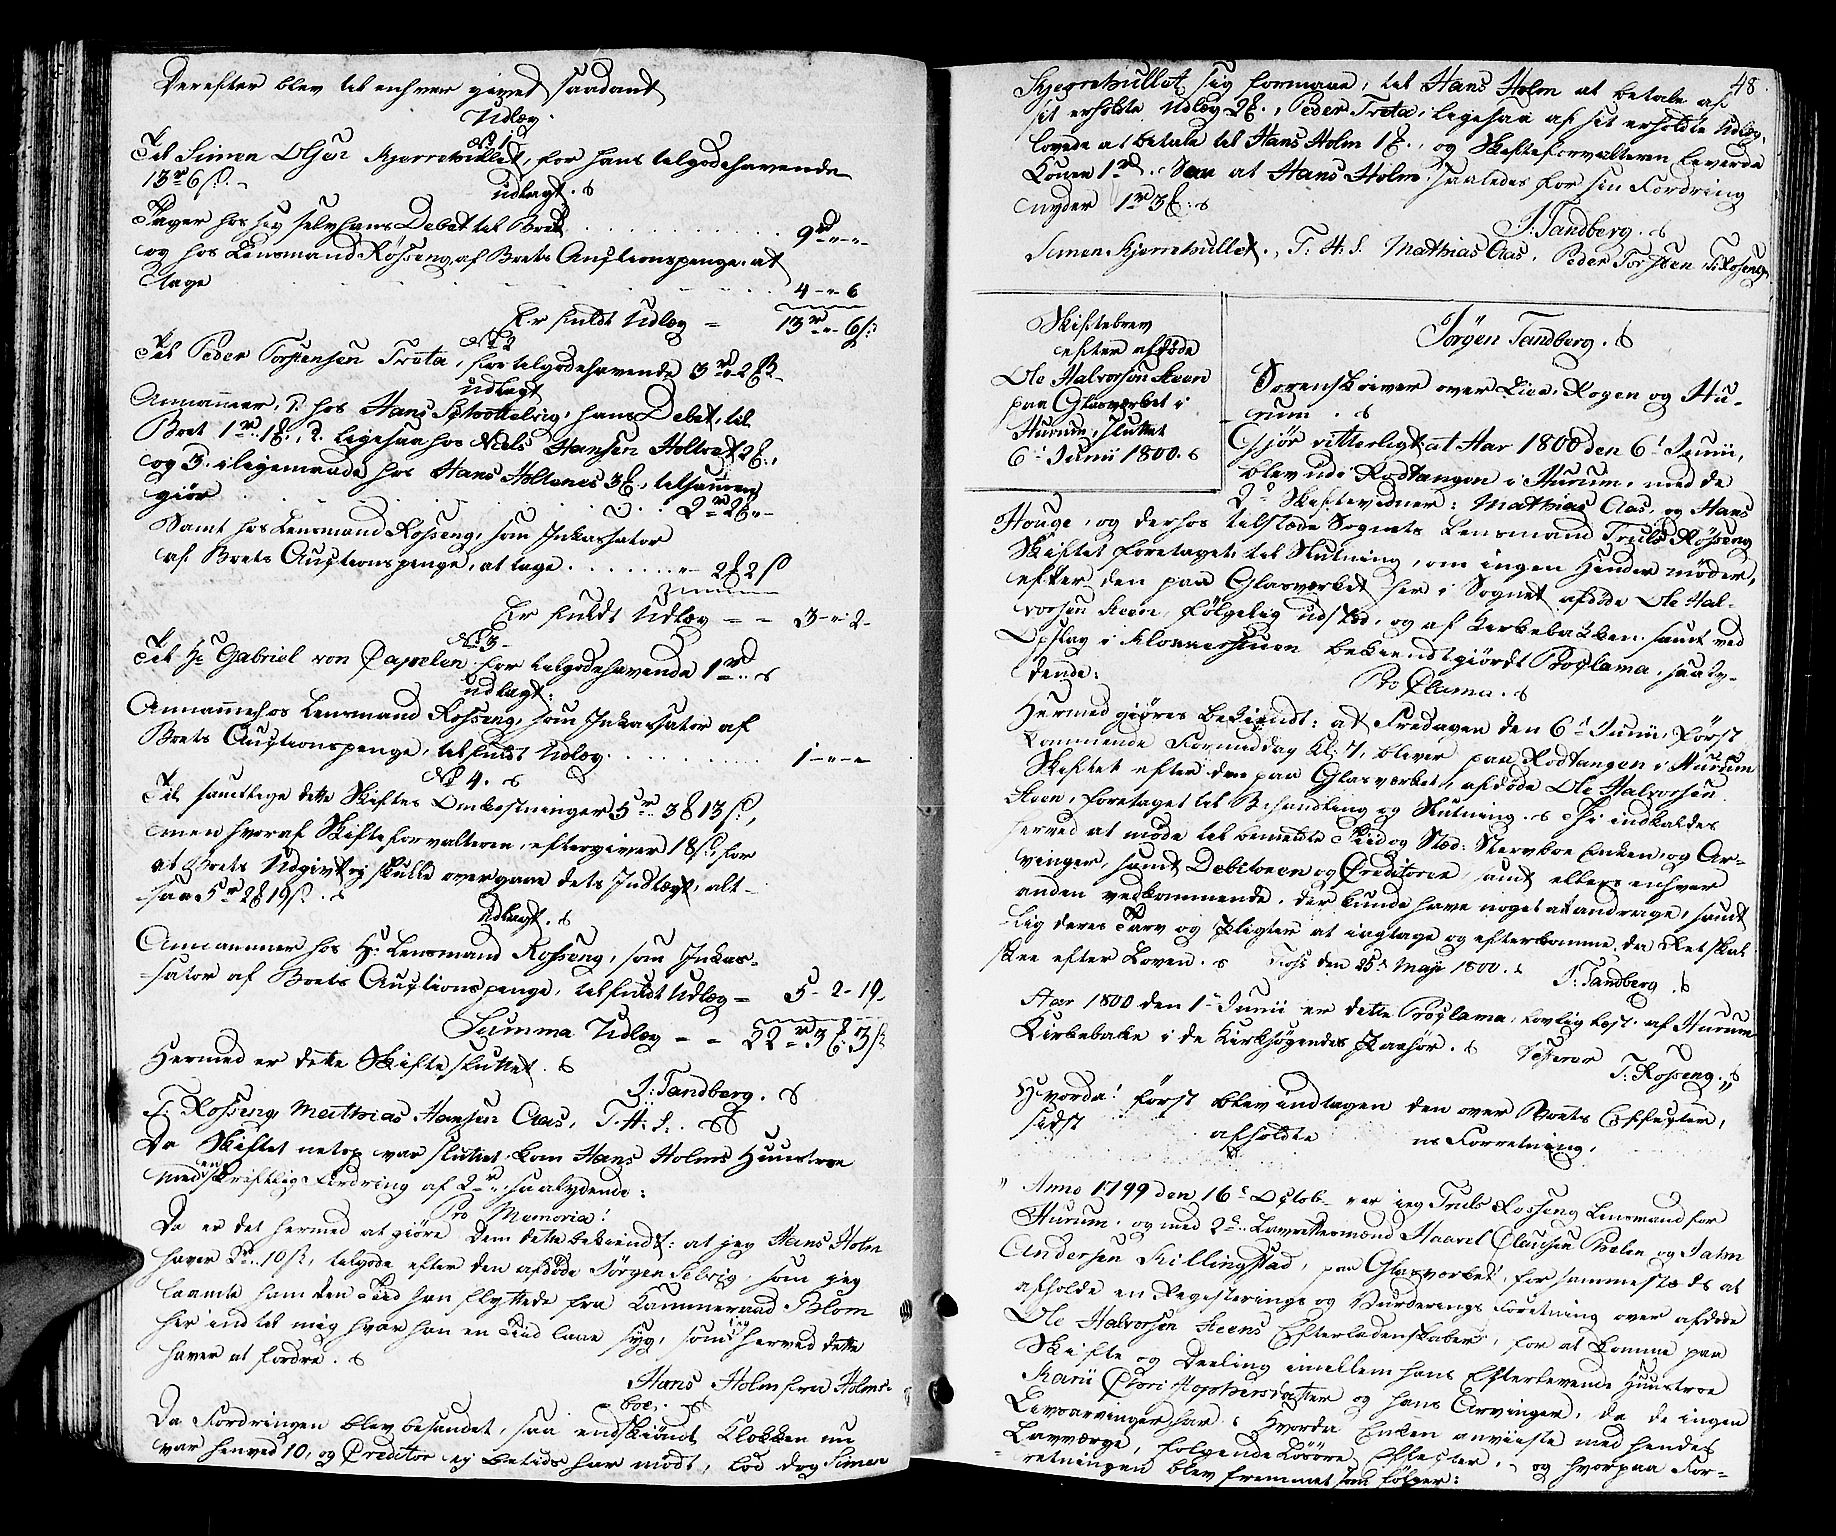 Derefter blev til enhver givet saadant
Udlæg.
No 1
Til Simen Olsen Kjerrehullet, for hans tilgodehavende
13 rd 6 s.
udlagt.
Tager hos sig selv hans Debet til Boet . . . 9 rd „ - „
og hos Lensmand Røsseng af Boets Auctionspenge at
tage . . . 4 - „ - 6
Er fuldt Udlæg - 13 rd „ 6 s.
No 2
Til Peder Torstensen Trota, for tilgodehavende 3 rd „ 2 s.
udlagt
Annammer, 1. hos Hans Schottelvig, hans Debet, til
Boet 1 rd 1 ₰., 2. ligesaa hos Niels Hansen Holtvet 2 ₰.,
og 3. i ligemaade hos Hans Holtenes 3 ₰., tilsammen
giør . . . 2 rd 2 ₰ „
Samt hos Lensmand Rosseng, som Inkassator
af Boets Auctionspenge, at tage . . . „ 2 ₰ 2 s
Er fuldt Udlæg - - 3 - „ 2 -
No 3
Til Hr Gabriel von Cappelen for tilgodehavende 1 rd „
udlagt:
Annamme hos Lensmand Rosseng, som Inkassator af
Boets Auctionspenge, til fuldt Udlæg . . . 1 - „ -
No 4.
Til samtlige dette Skiftes Omkostninger 5 rd 3 ₰ 13 s,
men hvoraf Skifteforvalteren, eftergiver 18 s, for
at Boets Udgivt ej skulle overgaae dets Indtægt, alt-
saa 5 rd 2 ₰ 19 s.
Udlagt.
Annammer hos Hr Lensmand Rosseng, som Inkas-
sator af Boets Auctionspenge, til fuldt Udlæg - 5 - 2 - 19 -
Summa Udlæg - - 22 rd 3 ₰ 3 s
Hermed er dette Skifte sluttet.
J: Tandberg.
T: Rosseng Mathias Hansen Aas, T. H. S.
Da Skiftet netop var sluttet, kom Hans Holms Huustroe
med en skriftlig Fordring af 2 rd „ saalydende:
Pro Memoria!
Da er det hermed at giøre Dem dette bekiendt: at jeg Hans Holm
haver 10 s, tilgode efter den afdøde Jørgen Selvig, som jeg
laante ham den Tiid han flyttede fra Kammeraad Blom
her ind til mig hvor han en Tiid laae syg, som jeg herved dette
haver at fordre.
Hans Holm fra Holms-
boe.
Da Fordringen blev befundet, saa endskiøndt Klokken nu
var henved 10, og Creditor ej betids har mødt, lod dog Simen
48.
Kjerrehullet sig formaae, til Hans Holm at betale af
sit erholdte Udlæg 2 ₰., Peder Trota, ligesaa af sit erholdte Udlæg,
lovede at betale til Hans Holm 1 ₰., og Skifteforvalteren leverede
Konen 1 rd. Saa at Hans Holm saaledes for sin Fordring
nyder 1 rd 3 ₰.
J: Tandberg.
Simen Kjerrehullet. T. H. S. Mathias Aas. Peder Torsten T: Roseng
Skiftebrev
efter afdøde
Ole Halvorsen Steen
paa Glasværket i
Hurum, sluttet
6 Junii 1800.
Jørgen Tandberg.
Sorenskriver over Lier, Røgen og Hu-
rum.
Gjør vitterligt at Aar 1800 den 6 Junii,
blev udi Rødtangen i Hurum, med de
2 Skiftevidner: Mathias Aas, og Hans
Houge, og derhos tilstæde Sognets Lensmand Truls Røsseng
Skiftet foretaget til Slutning, om ingen Hinder møder,
efter den paa Glasværket her i Sognet afdøde Ole Hal-
vorsen Steen, følgelig udstæd, og af Kirkebakken samt ved
Opslag i Klokkerstuen bekiendtgiordt Proclama, saaly-
dende:
Pro Clama.
Hermed giøres bekiendt: at Fredagen den 6 Junii, først
kommende Formiddag Kl: 7, bliver paa Rødtangen i Hurum
Skiftet efter den paa Glasværket, afdøde Ole Halvorsen
Steen, foretaget til Behandling og Slutning. Thi indkaldes
herved at møde til bemeldte Tiid og Stæd: Stervboe Enken, og Ar-
vinger, samt Debitorer og Creditorer, samt ellers enhver
anden vedkommende, der kunde have noget at andrage, samt
lig deres Tarv og Pligter at iagtage og efterkomme, da Ret skal
skee efter Loven. den 25 Maji 1800. J: Tandberg.
Aar 1800 den 1 Junii er dette Proclama lovlig læst af Hurum
Kirkebake i de Kirkesøgendes Paahør. Testerer
T: Rosseng.
Hvorda! først blev indtagen den over Boets Effecter,
sidst afholdte ns Forretning.
„ Anno 1799 den 16 Octob. var jeg Truls Rosseng Lensmand for
Hurum, og med 2 Laurettesmænd Haavel Claussen Bølen og Jahn
Andersen Killingstad, paa Glasværket, for sammesteds at
afholde en Registerings og Vurderings Forretning over afdøde
Ole Halvorsen Steens Efterladenskaber, for at komme paa
Skifte og Deeling imellem hans Efterlevende Huustroe
Karii Christophersdatter og hans Arvinger, da de ingen
Livsarvinger har. Hvorda Enken anviiste med hendes
Lavværge, følgende Løsøre Effecter, og hvorpaa For-
retningen blev fremmet som følger: